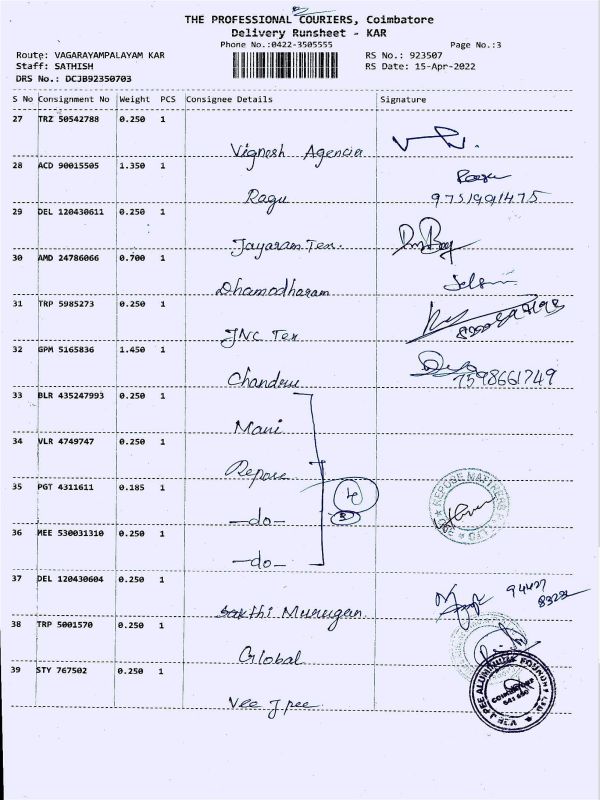 THE PROFESSIONAL COURIERS, Coimbatore
Delivery Runsheet - KAR
Phone No.:0422-3505555
Page No.:3
Route: VAGARAYAMPALAYAM KAR
RS No.: 923507
Staff: SATHISH
RS Date: 15-Apr-2022
DRS No.: DCJB92350703
S No Consignment No Weight PCS Consignee Details Signature
27 TRZ 50542788 0.250 1
Vignesh Agencia
28 ACD 90015505 1.350 1
Ragu
9751991475
29 DEL 120430611 0.250 1
Jayaram Tex.
30 AMD 24786066 0.700 1
Dhamodharam
31 TRP 5985273 0.250 1
JNC Tex
32 GPM 5165836 1.450 1
Chandru 7598661749
33 BLR 435247993 0.250 1
Mani
34 VLR 4749747 0.250 1
Repose
35 PGT 4311611 0.185 1
-do-
REPOSE MATTRESS
36 MEE 530031310 0.250 1
-do-
37 DEL 120430604 0.250 1
94427
Sakthi Murugan
38 TRP 5001570 0.250 1
Global
39 STY 767502 0.250 1
Vee J pee
J.PEE ALUMINIUM FOUNDRY
COIMBATORE